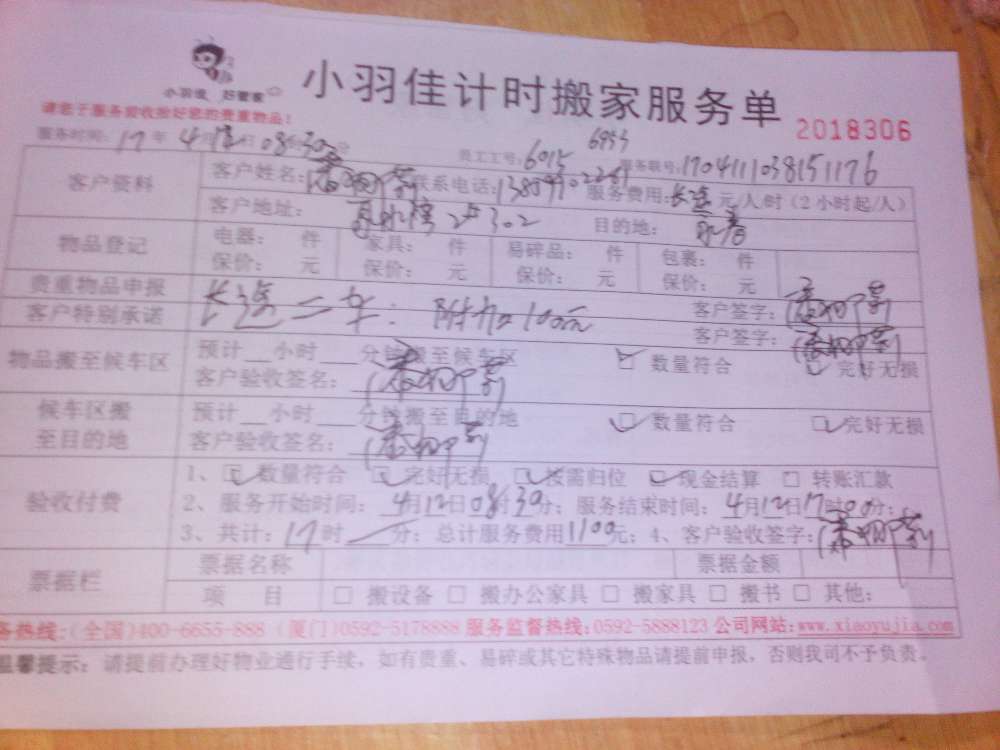 小羽佳 好管家
小羽佳计时搬家服务单
2018306
请您于服务前收拾好您的贵重物品!
服务时间: 17年4月12日08时30分 员工工号: 6015 6953 服务联号: 170411103815 1176
客户资料 客户姓名: 联系电话: 服务费用: 长途 元/人/时(2小时起/人)
客户地址: 302 目的地: 永春
物品登记 电器: 件 家具: 件 易碎品: 件 包裹: 件
保价: 元 保价: 元 保价: 元 保价: 元
贵重物品申报 客户签字:
客户特别承诺 长途一车: 附加 100元 客户签字:
物品搬至候车区 预计__小时__分钟搬至候车区 数量符合 完好无损
客户验收签名:
候车区搬至目的地 预计__小时__分钟搬至目的地 数量符合 完好无损
客户验收签名:
验收付费 1、数量符合 完好无损 按需归位 现金结算 转账汇款
2、服务开始时间: 4月12日08时30分; 服务结束时间: 4月12日17时00分;
3、共计: 17时 分; 总计服务费用1100元; 4、客户验收签字:
票据栏 票据名称 票据金额
项 目 □ 搬设备 □ 搬办公家具 □ 搬家具 □ 搬书 □ 其他:
务热线:(全国)400-6655-888 (厦门)0592-5178888 服务监督热线:0592-5888123 公司网站:www.xiaoyujia.com
温馨提示: 请提前办理好物业通行手续, 如有贵重、易碎或其它特殊物品请提前申报, 否则我司不予负责。